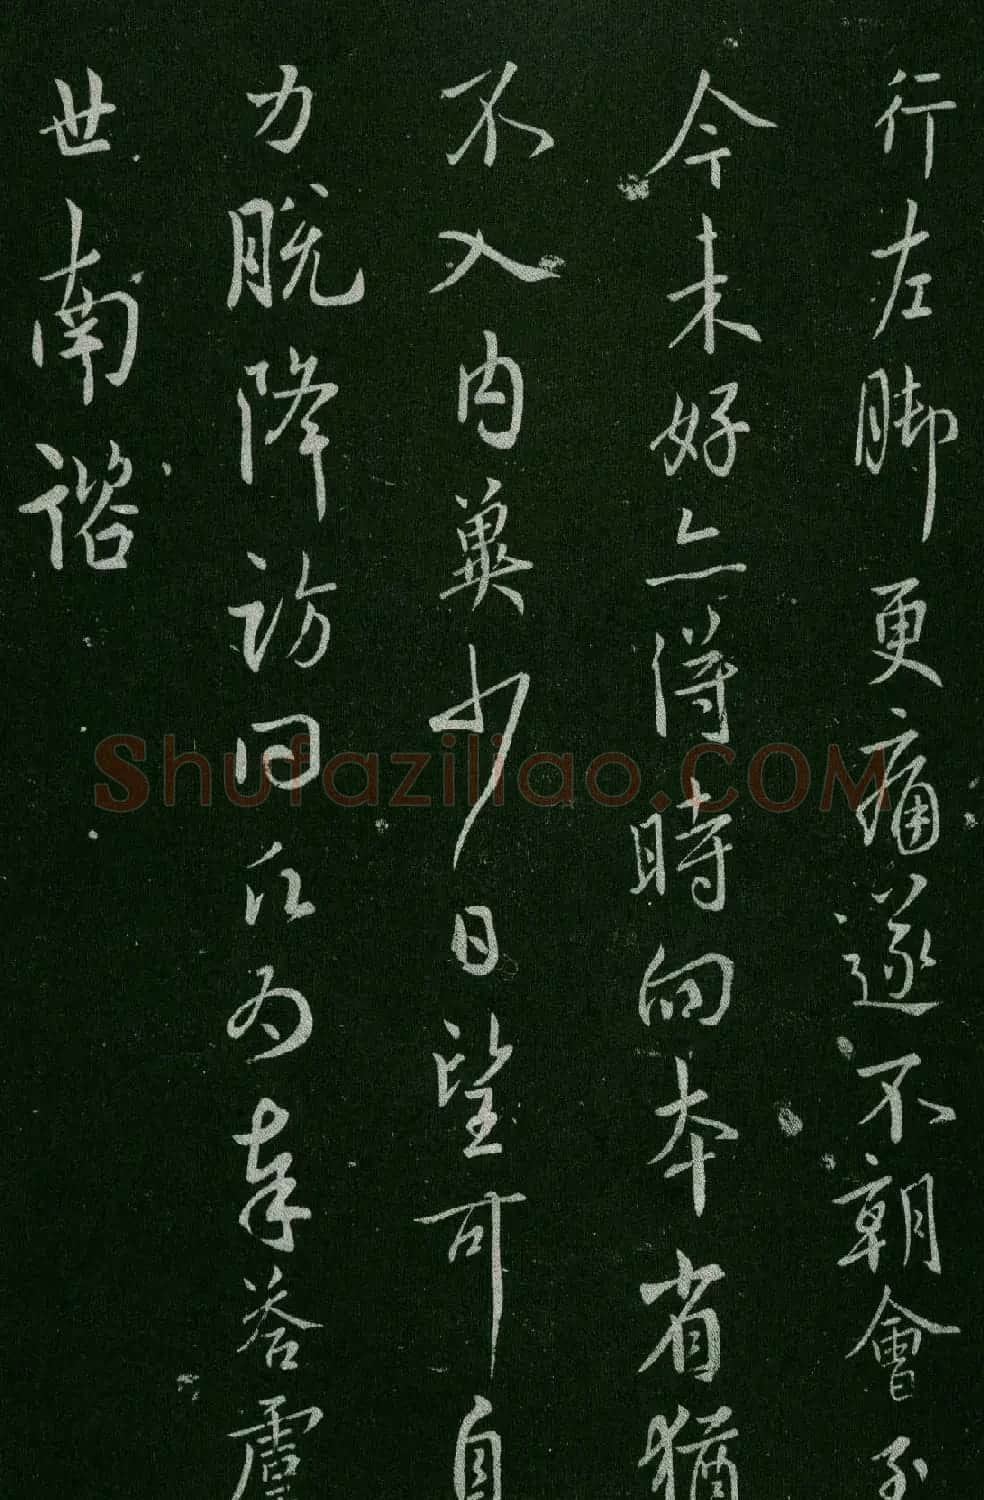 行左脚更痛遂不朝會至
今未好亦得時向本省猶
不入内冀少日望可自
力脱降訪問仁为奉荅虞
世南諮
Shufaziliao.COM